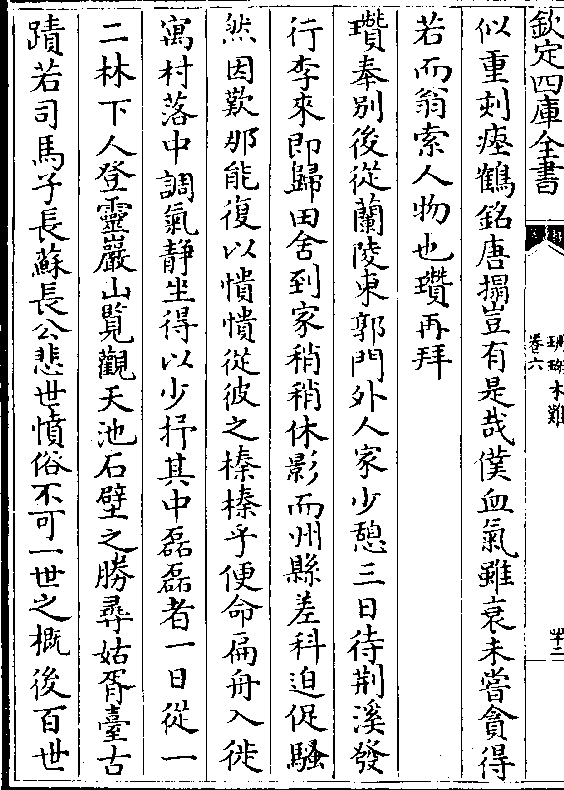 欽定四庫全書
珊瑚木難
卷六
似重刻瘞鶴銘唐搨豈有是哉僕血氣雖衰未嘗貪得
若而翁索人物也瓚再拜
瓚奉別後從蘭陵東郭門外人家少憩三日待荆溪發
行李來即歸田舍到家稍稍休影而州縣差科迫促騷
然因歎那能復以憒憒從彼之榛榛乎便命扁舟入徙
寓村落中調氣靜坐得以少抒其中磊磊者一日從一
二林下人登靈巖山覧觀天池石壁之勝尋姑胥臺古
蹟若司馬子長蘇長公悲世憤俗不可一世之概後百世